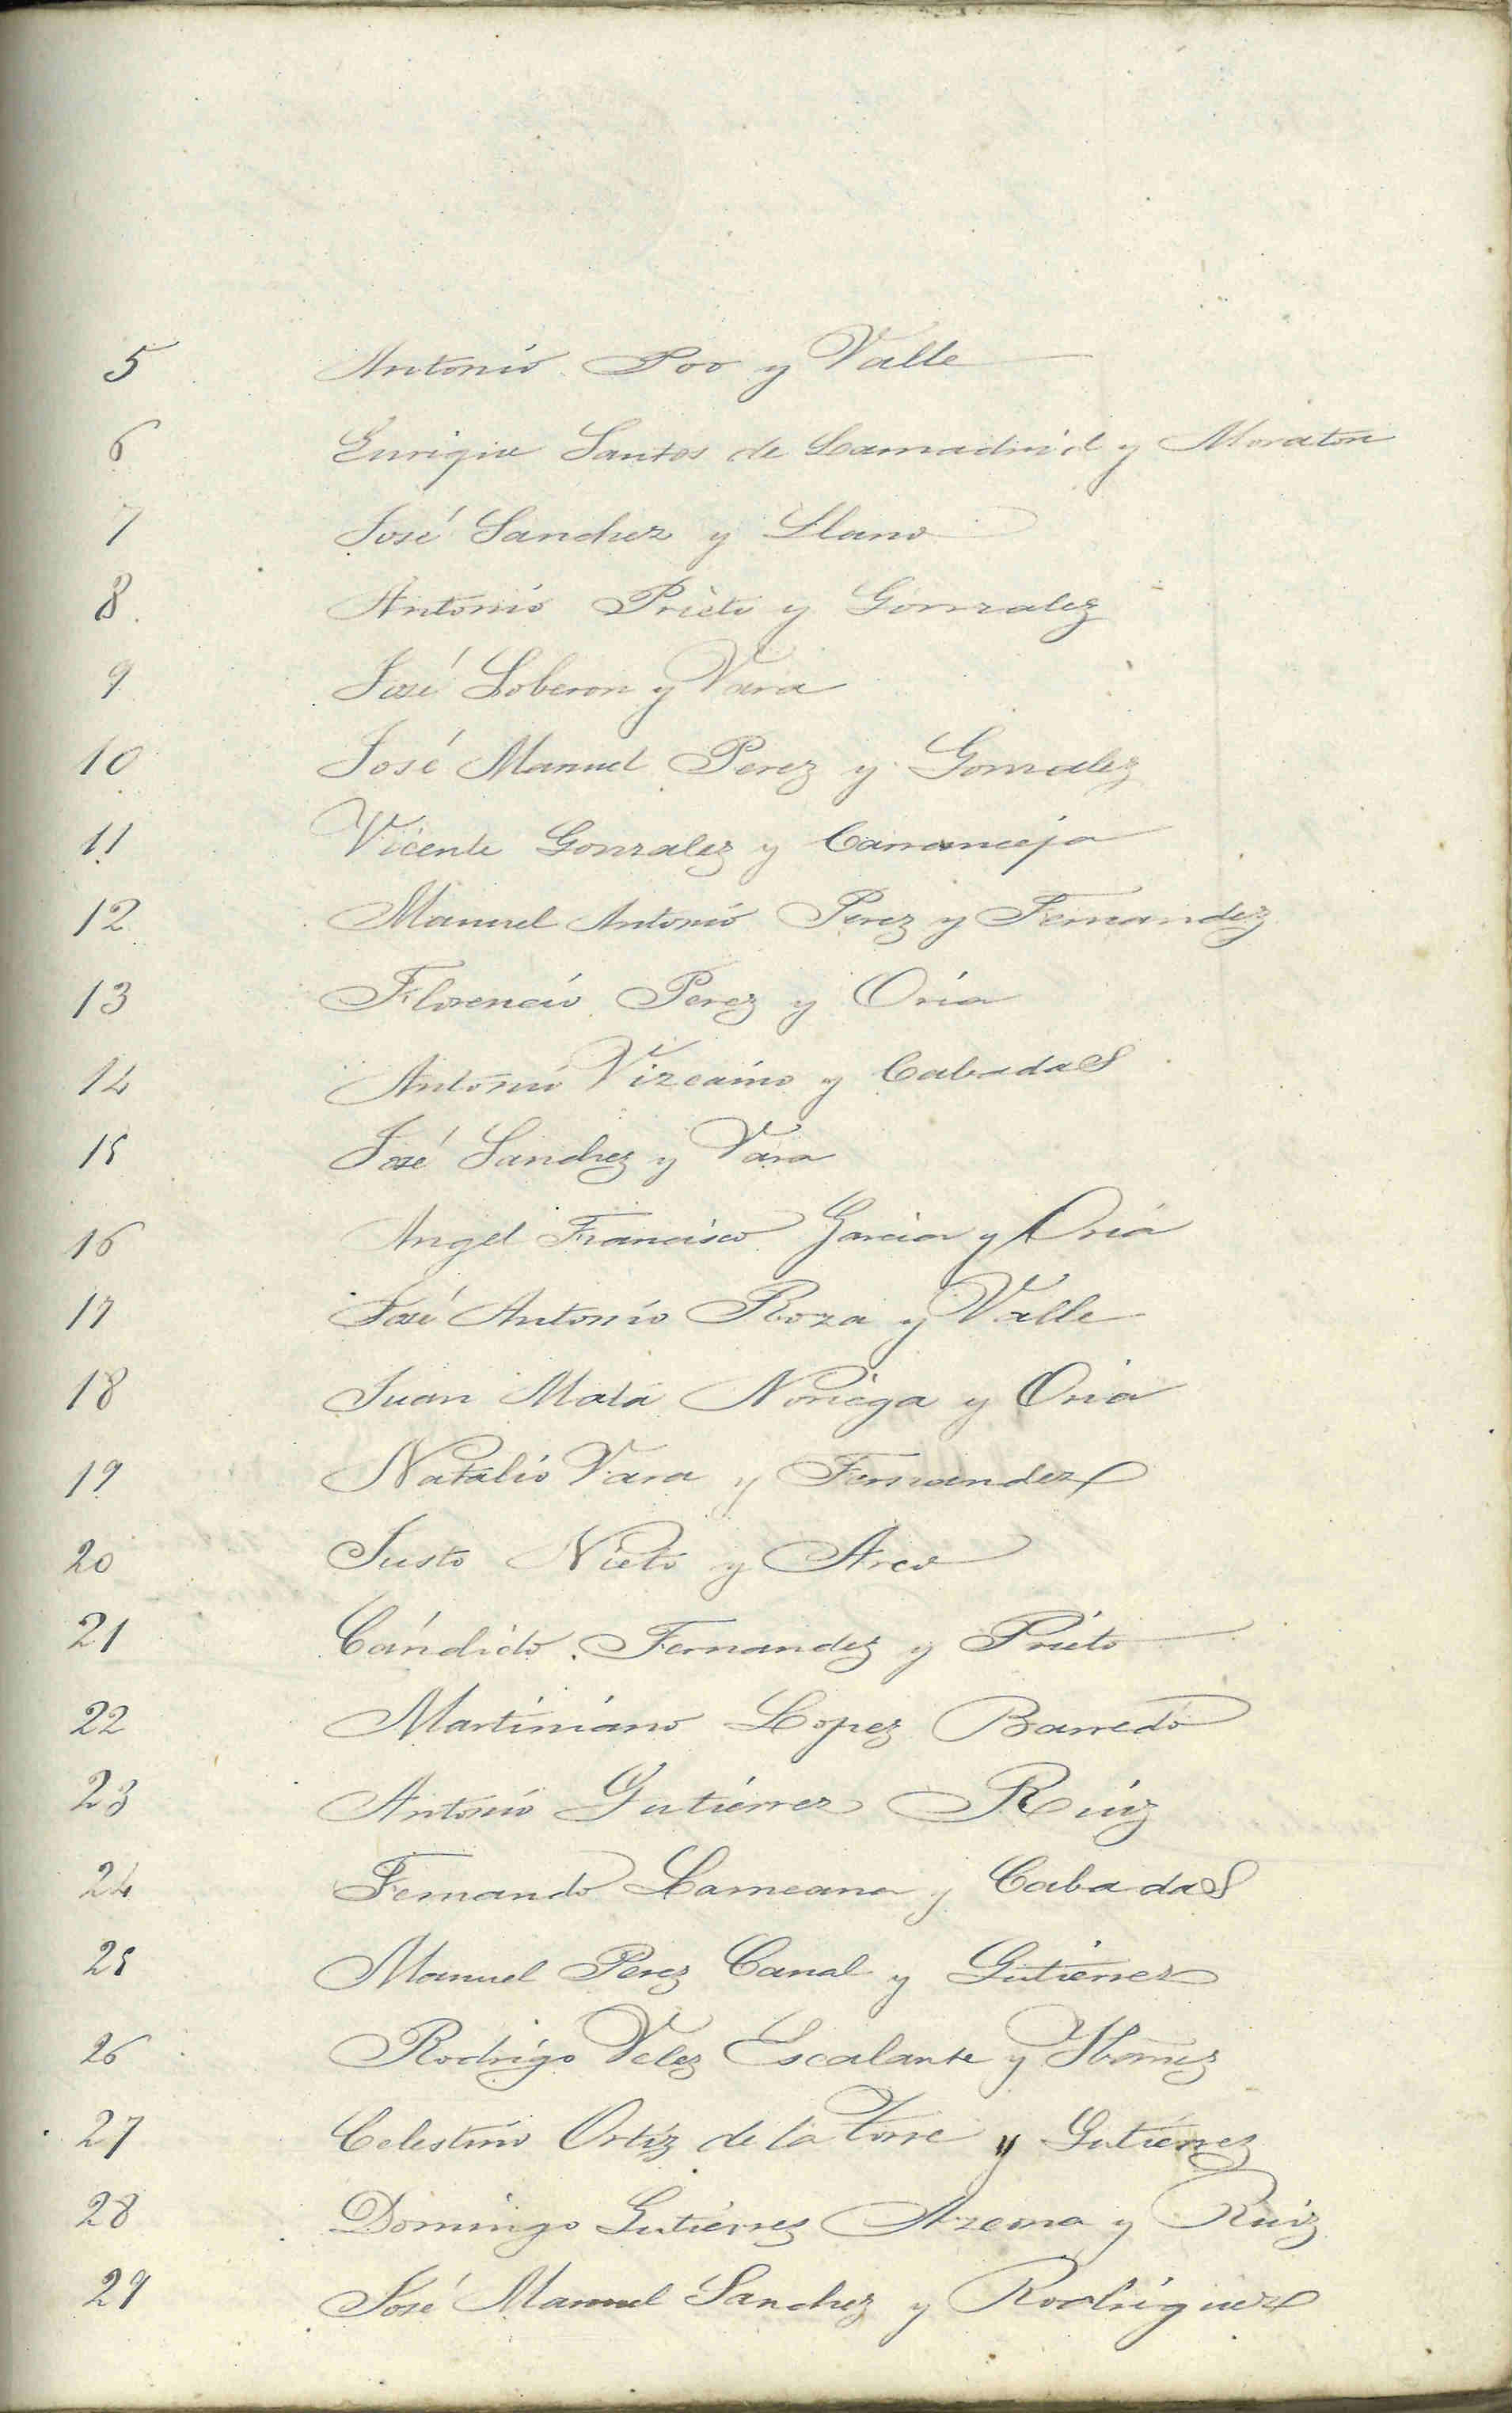 5 Antonio Poo y Valle
6 Enrique Santos de Lamadrid y Moraton
7 José Sanchez y Llano
8 Antonio Prieto y Gonzalez
9 José Soberon y Vara
10 José Manuel Perez y Gonzalez
11 Vicente Gonzalez y Carranceja
12 Manuel Antonio Perez y Fernandez
13 Florencio Perez y Oria
14 Antonio Vizcaino y Cabadas
15 José Sanchez y Vara
16 Angel Francisco Garcia y Oria
17 José Antonio Roza y Valle
18 Juan Mata Noriega y Oria
19 Natalio Vara y Fernandez
20 Justo Nieto y Arco
21 Cándido Fernandez y Prieto
22 Martiniano Lopez Barredo
23 Antonio Gutierrez Ruiz
24 Fernando Lameana y Cabadas
25 Manuel Perez Canal y Gutierrez
26 Rodrigo Velez Escalante y Ybañez
27 Celestino Ortiz de la Torre y Gutierrez
28 Domingo Gutierrez Azcona y Ruiz
29 José Manuel Sanchez y Rodriguez